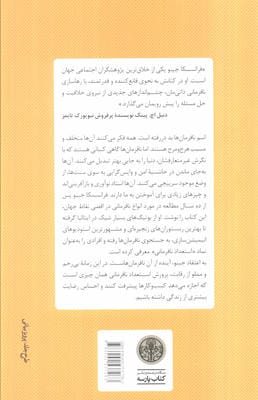 «فرانسسکا جینو یکی از خلاق‌ترین پژوهشگران اجتماعی جهان
است. او در کتابش به نحوی قانع‌کننده و قدرتمند، با رهاسازی
نافرمانی ذاتی‌مان، چشم‌اندازهای جدیدی از نیروی خلاقیت و
حل مسئله را پیش رویمان می‌گذارد.»
دنیل اچ. پینک نویسنده پرفروش نیویورک تایمز
اسم نافرمان‌ها بد در رفته است. همه فکر می‌کنند آن‌ها متخلف و
مسبب هرج‌ومرج هستند. اما نافرمان‌ها گاهی کسانی هستند که با
نگرش غیرمتعارفشان، دنیا را به جایی بهتر تبدیل می‌کنند. آن‌ها
به‌جای ماندن در حاشیهٔ امن و واپس‌گرایی به سوی سنت‌ها، از
وضع موجود سرپیچی می‌کنند. آن‌ها استاد نوآوری و بازآفرینی‌اند
و چیزهای زیادی برای آموختن به ما دارند. فرانسسکا جینو پس
از ده سال مطالعه در مورد انواع نافرمانی در اقصی نقاط جهان،
این کتاب را نوشت. او از بوتیک‌های بسیار شیک در ایتالیا گرفته
تا بهترین رستوران‌های زنجیره‌ای و مشهورترین استودیوهای
انیمیشن‌سازی، به جستجوی نافرمان‌ها رفته و افرادی را به‌عنوان
نماد «استعداد نافرمانی» معرفی کرده است.
به اعتقاد جینو، آینده از آن نافرمان‌هاست. در این زمانهٔ بی‌رحم
و مملو از رقابت، پرورش استعداد نافرمانی همان چیزی است
که اجازه می‌دهد کسب‌وکارها پیشرفت کنند و احساس رضایت
بیشتری از زندگی داشته باشیم.
کتاب پارسه